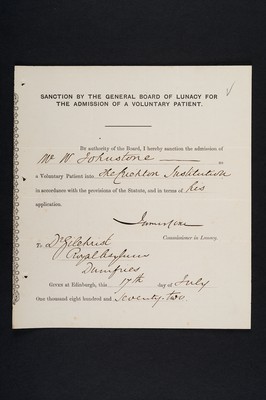 SANCTION BY THE GENERAL BOARD OF LUNACY FOR
THE ADMISSION OF A VOLUNTARY PATIENT.
By authority of the Board, I hereby sanction the admission of
Mr W Johnstone as
a Voluntary Patient into the Crichton Institution
in accordance with the provisions of the Statute, and in terms of his
application.
Commissioner in Lunacy.
To Dr Gilchrist
Royal Asylum
Dumfries
GIVEN at Edinburgh, this 17th day of July
One thousand eight hundred and seventy-two.